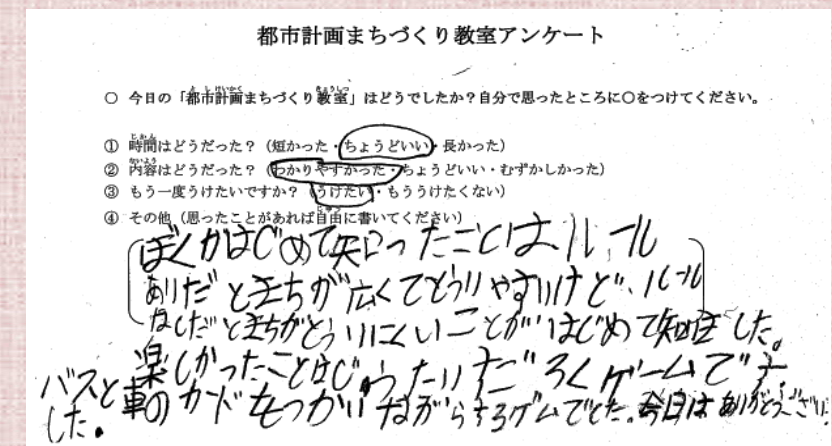 都市計画まちづくり教室アンケート
○ 今日の「都市計画まちづくり教室」はどうでしたか？自分で思ったところに○をつけてください。
① 時間はどうだった？（短かった・ちょうどいい・長かった）
② 内容はどうだった？（わかりやすかった・ちょうどいい・むずかしかった）
③ もう一度うけたいですか？（うけたい・もううけたくない）
④ その他（思ったことがあれば自由に書いてください）
ぼくがはじめて知ったことは、ルール
ありだとまちが広くてとうりやすいけど、ルール
なしだとまちがとうりにくいことがはじめて知ました。
楽しかったことはじゅうたいすごろくゲームです
バスと車のカードをつかいながらするゲムでした。今日はありがとうござい
した。